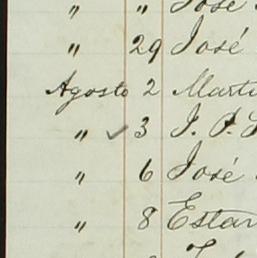 " " José
" 29 José
Agosto 2 Marti
" ✓ 3 J. P.
" 6 José
" 8 Estan